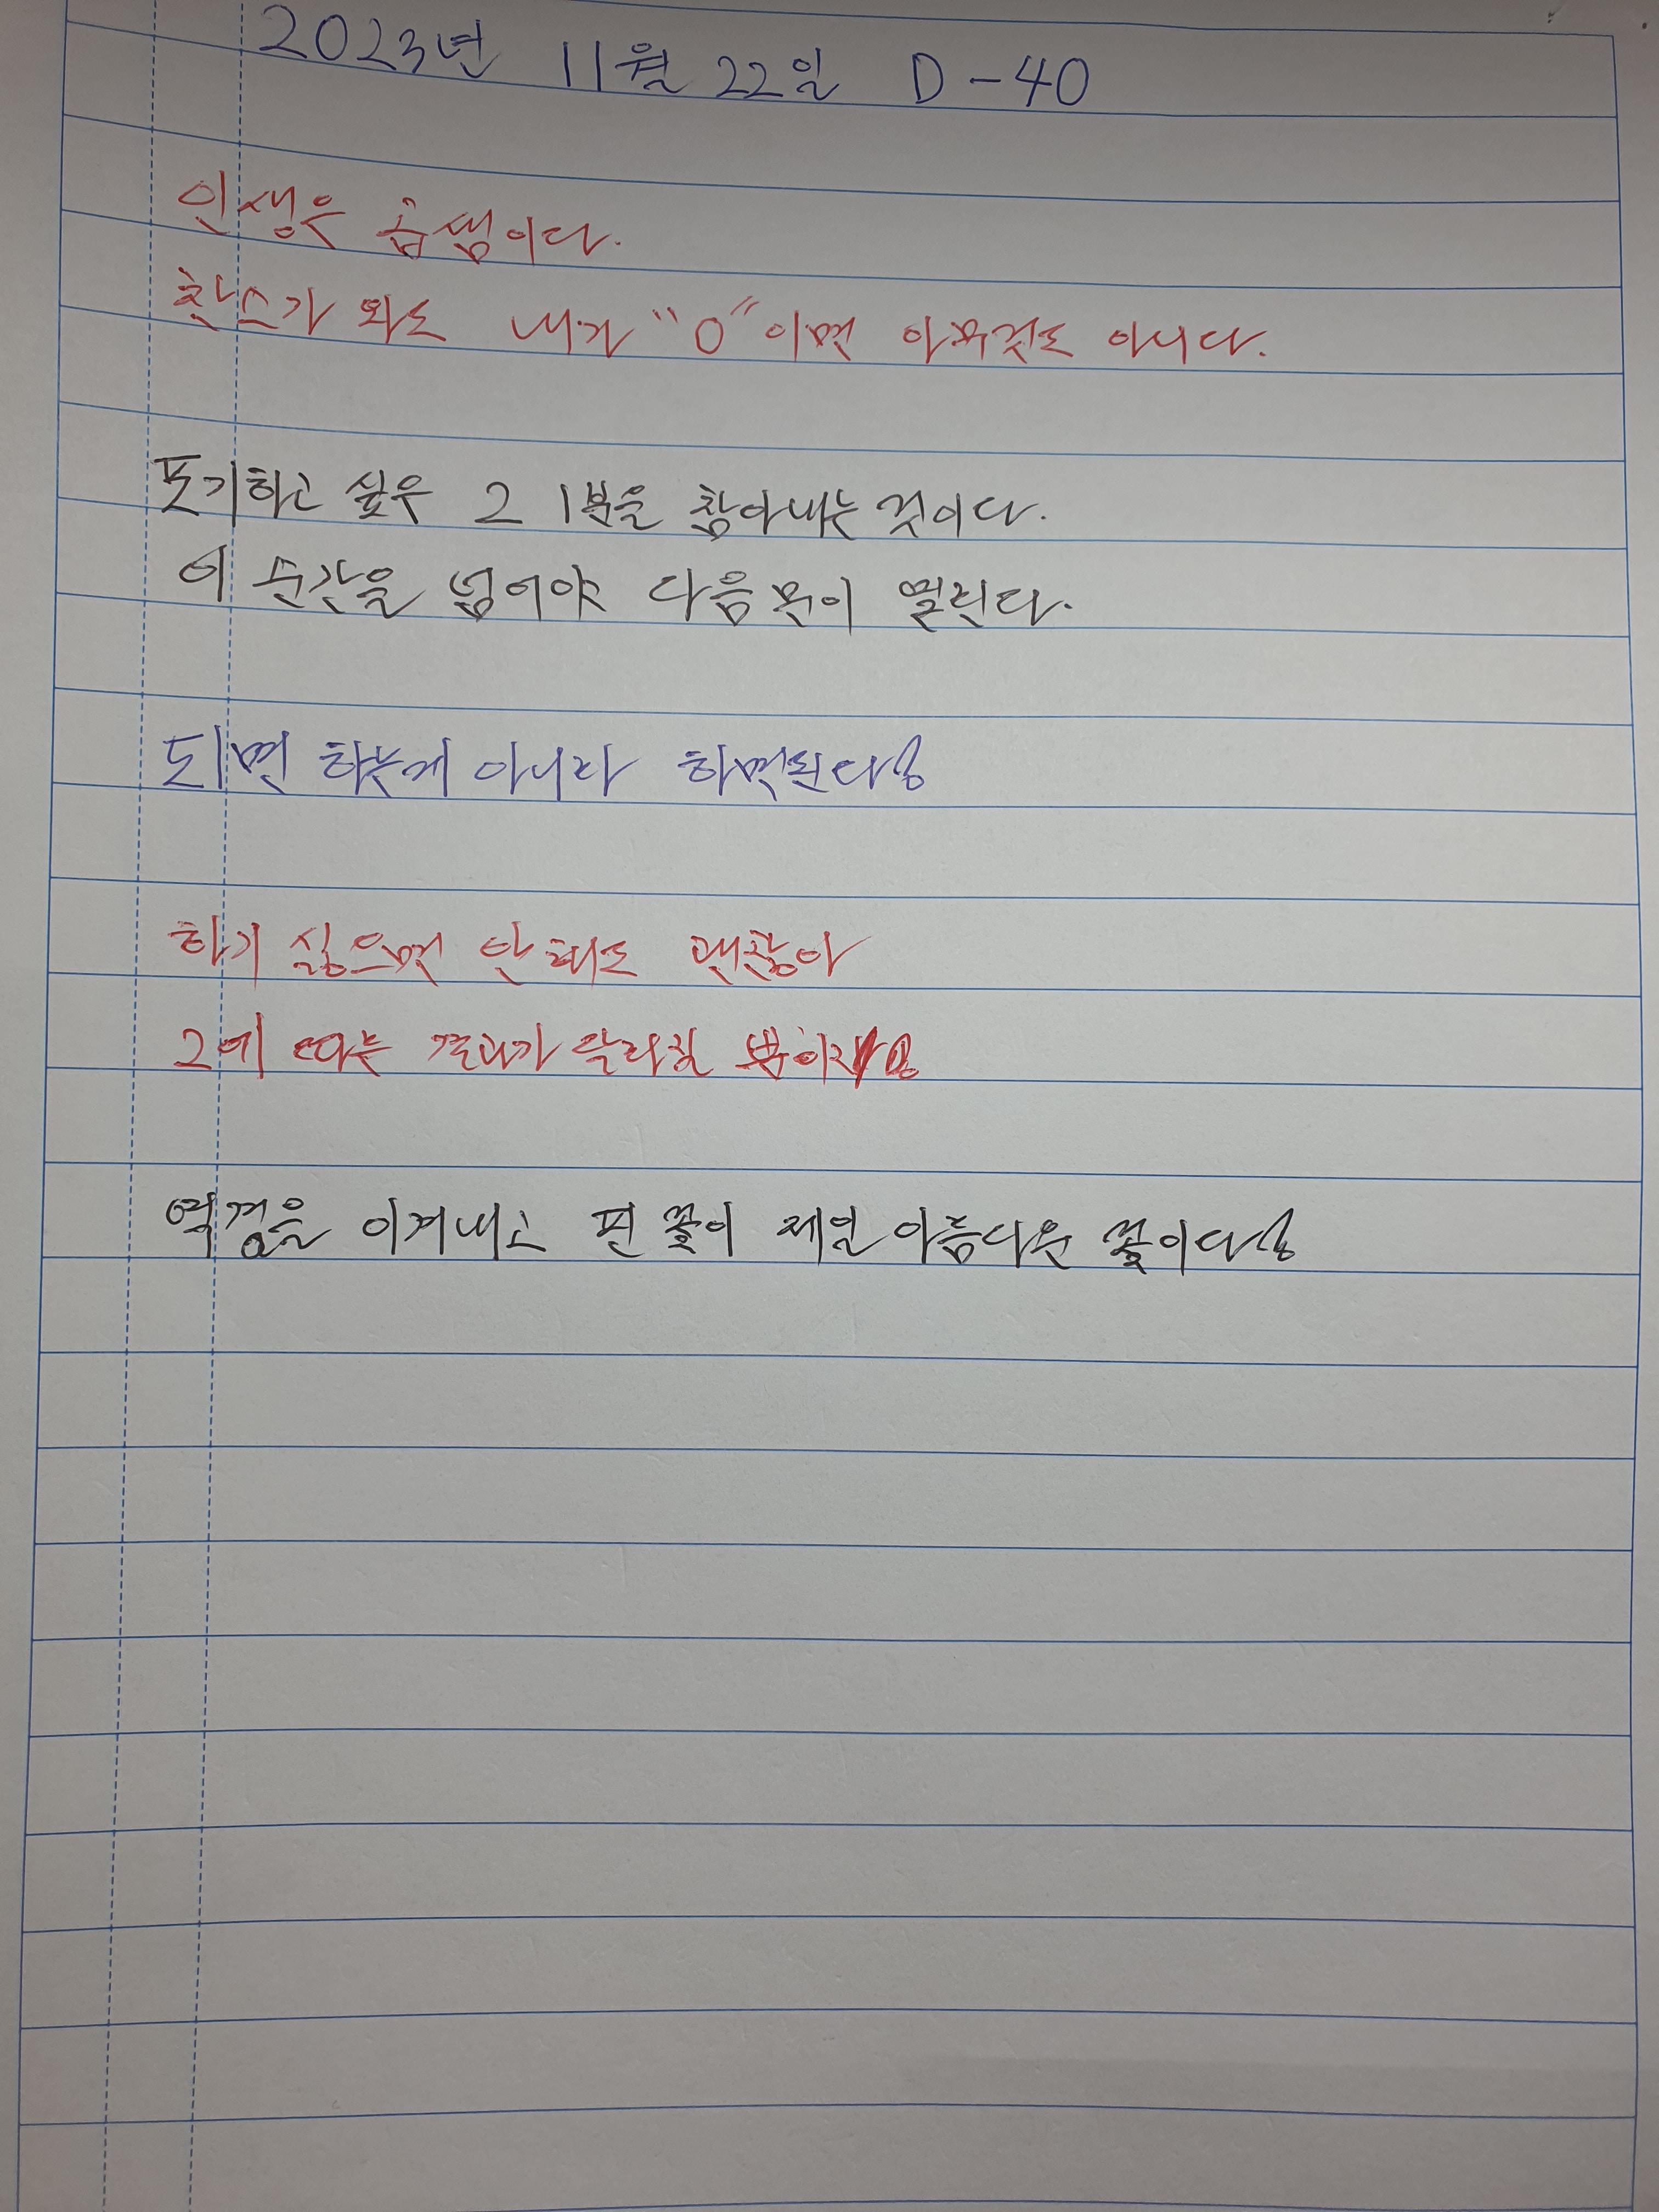 2023년 11월 22일 D-40
인생은 곱셈이다.
찬스가 와도 내가 "0"이면 아무것도 아니다.
포기하고 싶은 그 1분을 참아내는 것이다.
이 순간을 넘어야 다음 문이 열린다.
되면 하는게 아니라 하면된다!
하기 싫으면 안 해도 괜찮아
그에 따는 결과가 달라질 뿐이지!
역경을 이겨내고 핀 꽃이 제일 아름다운 꽃이다!